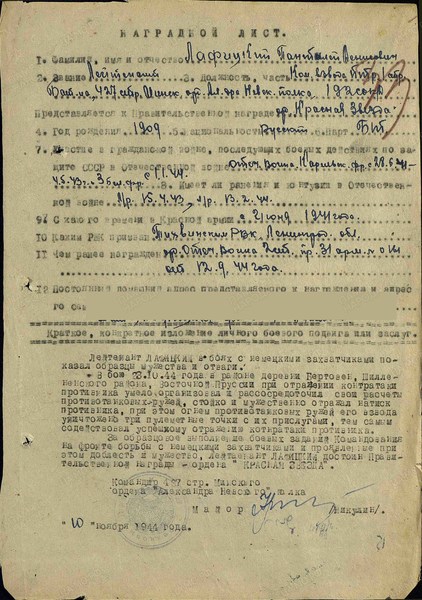 НАГРАДНОЙ ЛИСТ.
1. Фамилия, имя и отчество Лафицкий Пантелей
2. Звание Лейтенант 3. Должность, часть Ком. взвода ПТР, стр.
Бат-на, 427 стр. Минск. орд. Ал-дра Невск. полка 192 СКОКД
Представляется к Правительственной награде ор. Красная Звезда.
4. Год рождения 1909 5. Национальность Русский 6. Парт. Б/П
7. Участие в гражданской войне, последующих боевых действиях по защите СССР в Отечественной войне Отеч. Война Карельск. фр. с 28.6.41-
4.5.43. - 3 бел. фр. с 1.1.44.
8. Имеет ли ранения и контузии в Отечественной
войне л/р. 15.4.43, л/р. 13.2.44
9. С какого времени в Красной армии с 2 июня 1941 года
10 Каким РВК призван Тихвинским РВК Ленингр. обл.
11 Чем ранее награжден ор. Отеч. Война 2 ст. пр. 31 арм. №
от 12.9.44 года.
12 Постоянный домашний адрес представляемого к награждению и адрес
его
Краткое, конкретное изложение личного боевого подвига или заслуг.
Лейтенант ЛАФИЦКИЙ в боях с немецкими захватчиками по-
казал образцы мужества и отваги.
В бою 23.10.44 года в районе деревни Пертовен, Пиллкел-
ненского района, Восточной Пруссии при отражении контратаки
противника умело организовал и рассосредоточил свои расчеты
противотанковых ружей, стойко и мужественно отражал натиск
противника, при этом огнем противотанковых ружей его взвода
уничтожено три пулеметные точки с их прислугами, тем самым
содействовал успешному отражению контратаки противника.
За образцовое выполнение боевых заданий Командования
на фронте борьбы с немецкими захватчиками и проявленные при
этом доблесть и мужество, Лейтенант ЛАФИЦКИЙ достоин Прави-
тельственной награды - ордена "КРАСНАЯ ЗВЕЗДА".
Командир 427 стр. Минского
ордена "Александра Невского" полка
Майор /Никулин/
"10" ноября 1944 года.